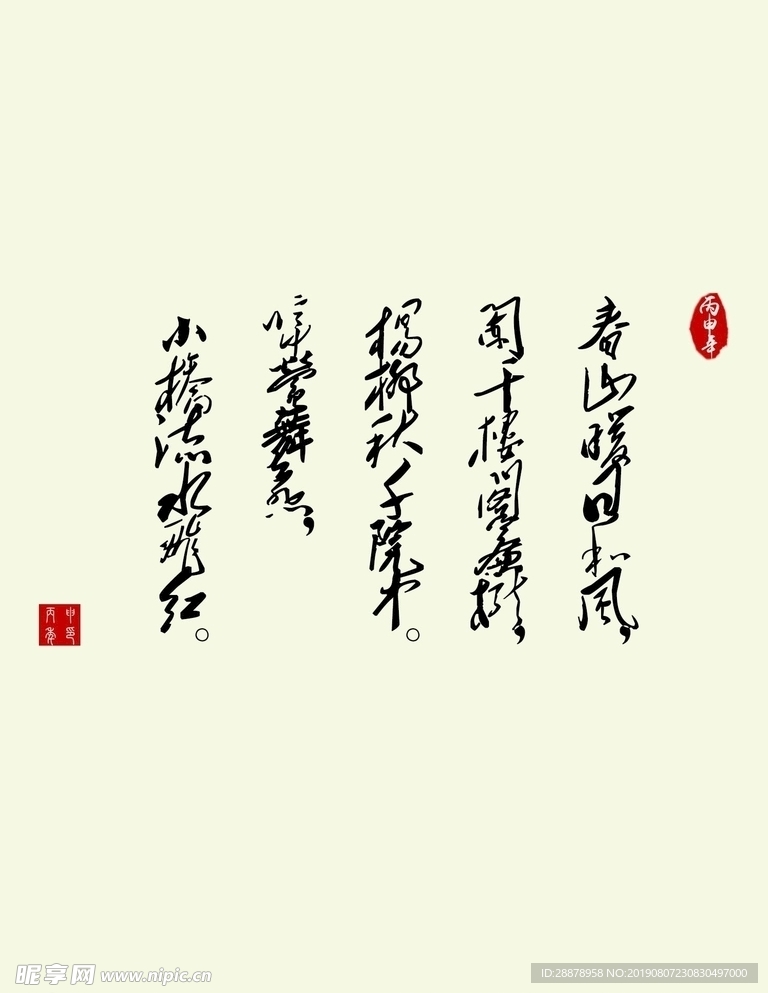 丙申年
春山暖日和风，
闌干樓閣簾櫳，
楊柳秋千院中。
啼鶯舞燕，
小橋流水飛紅。
申印
丙年
昵享网 www.nipic.cn
ID:28878958 NO:20190807230830497000